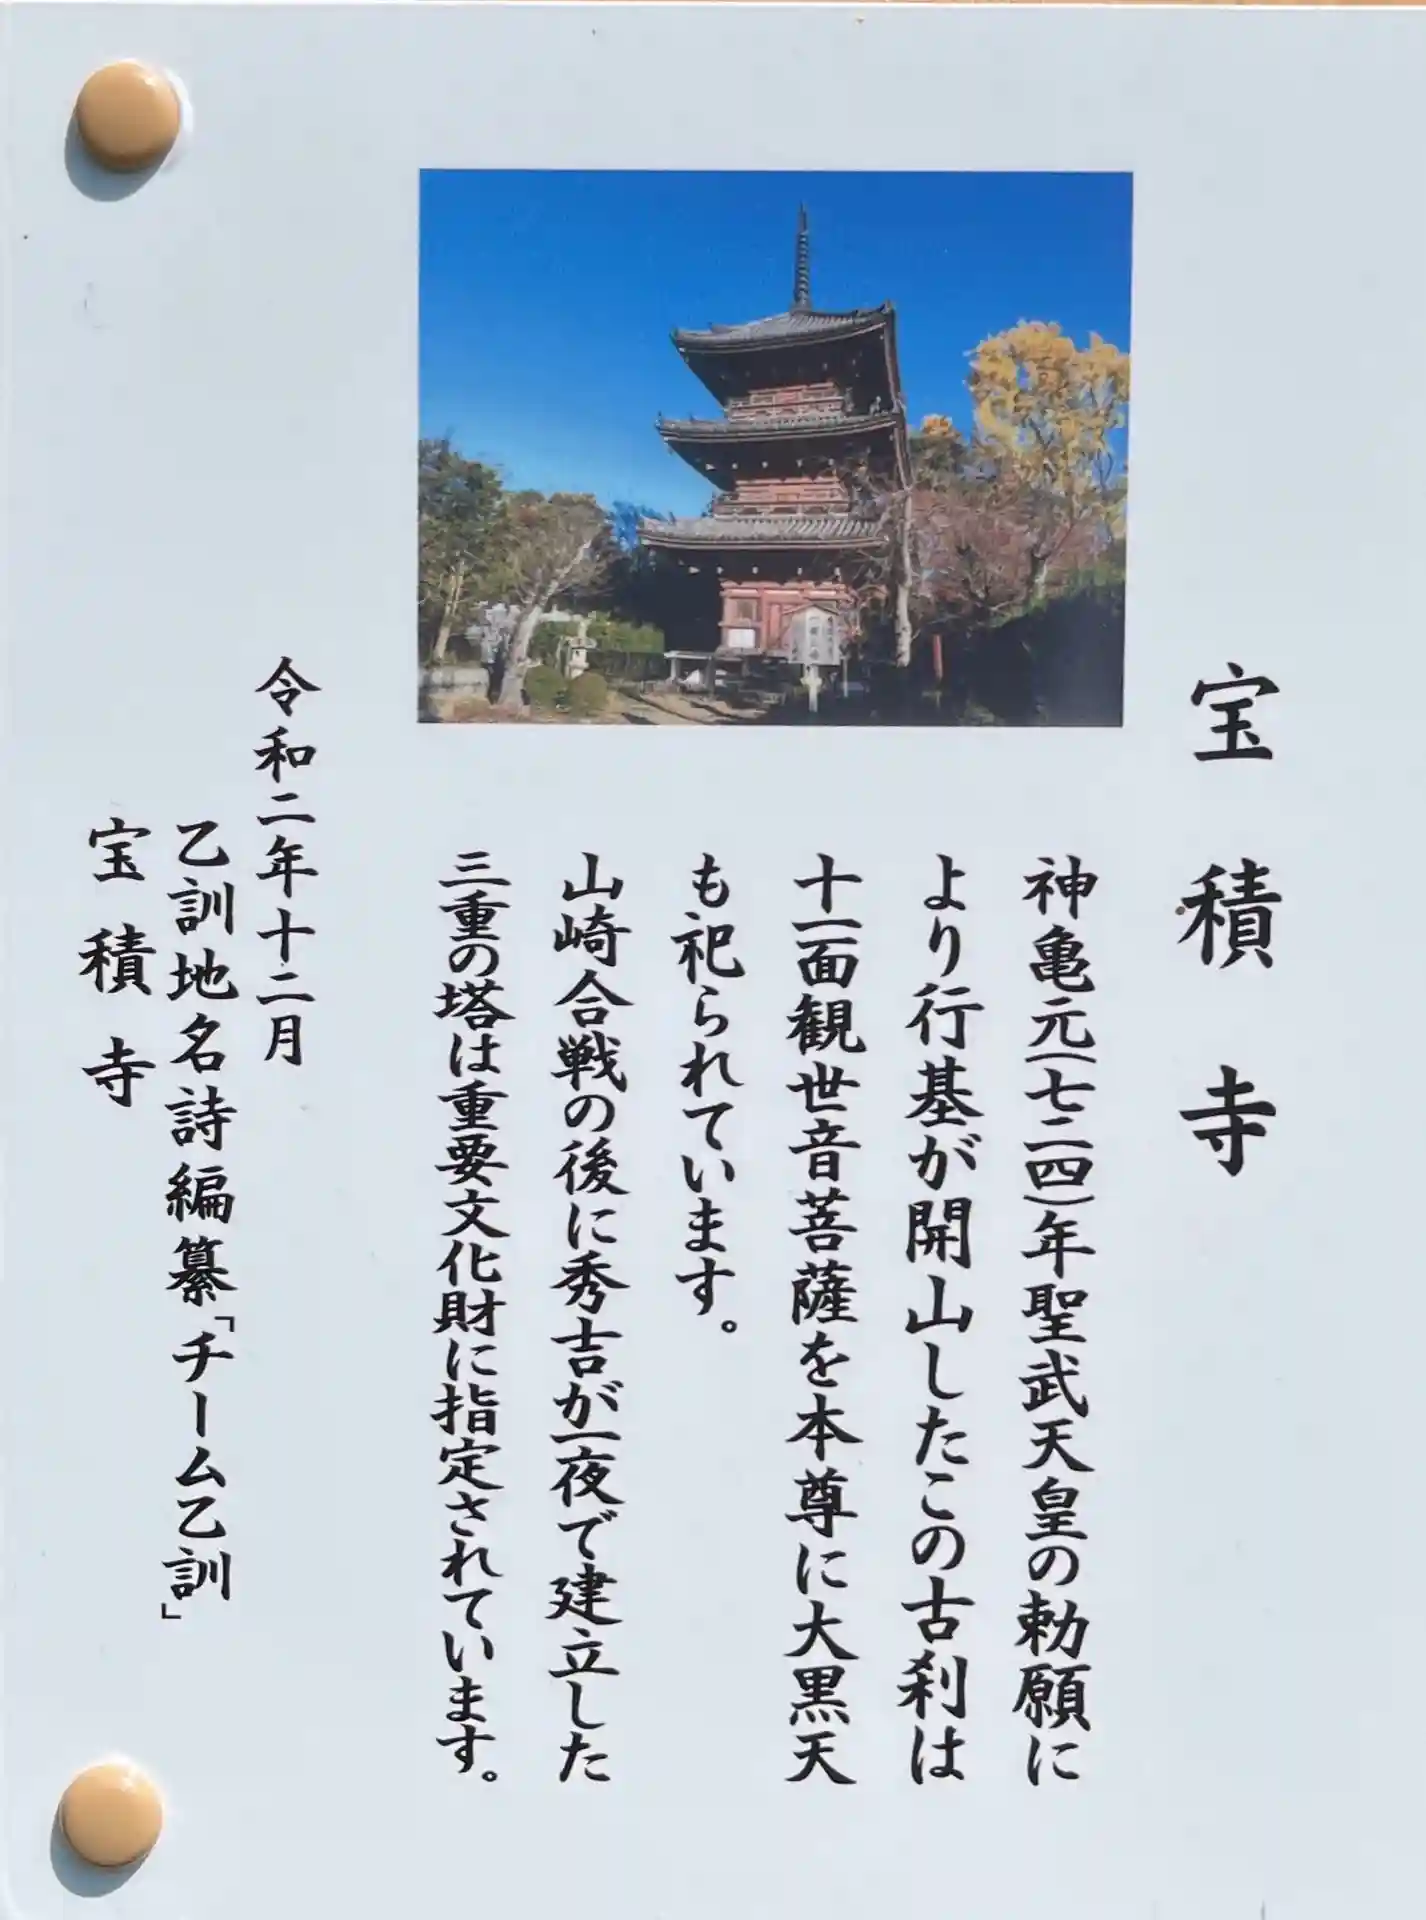 宝積寺
神亀元(七二四)年聖武天皇の勅願に
より行基が開山したこの古刹は
十一面観世音菩薩を本尊に大黒天
も祀られています。
山崎合戦の後に秀吉が一夜で建立した
三重の塔は重要文化財に指定されています。
令和二年十二月
乙訓地名詩編纂「チーム乙訓」
宝積寺